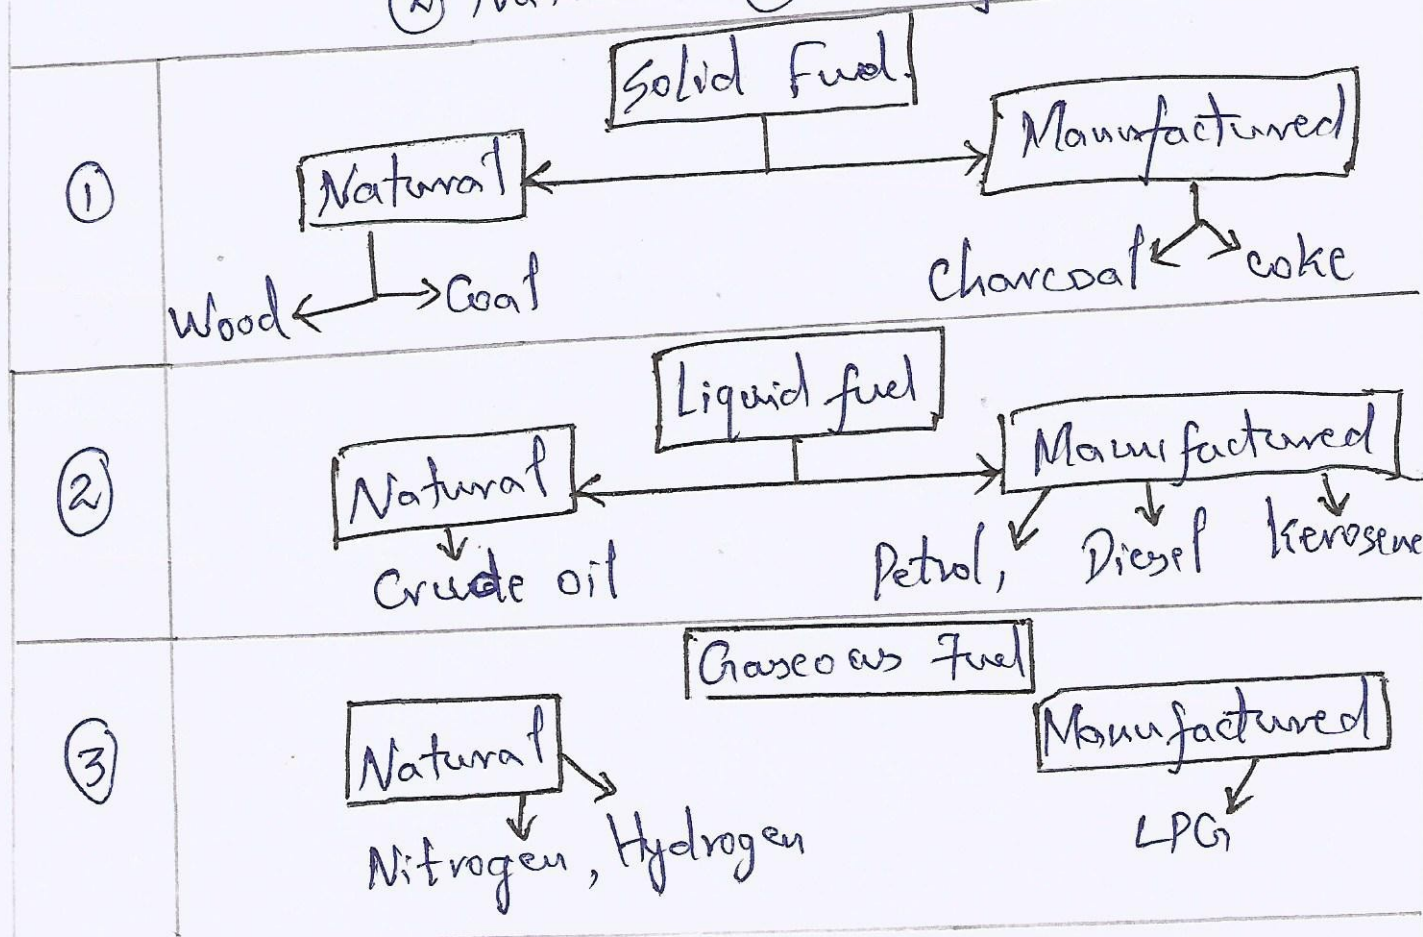 ① Solid Fuel
Natural Manufactured
Wood Coal Charcoal coke
② Liquid fuel
Natural Manufactured
Crude oil Petrol, Diesel Kerosene
③ Gaseous Fuel
Natural Manufactured
Nitrogen, Hydrogen LPG